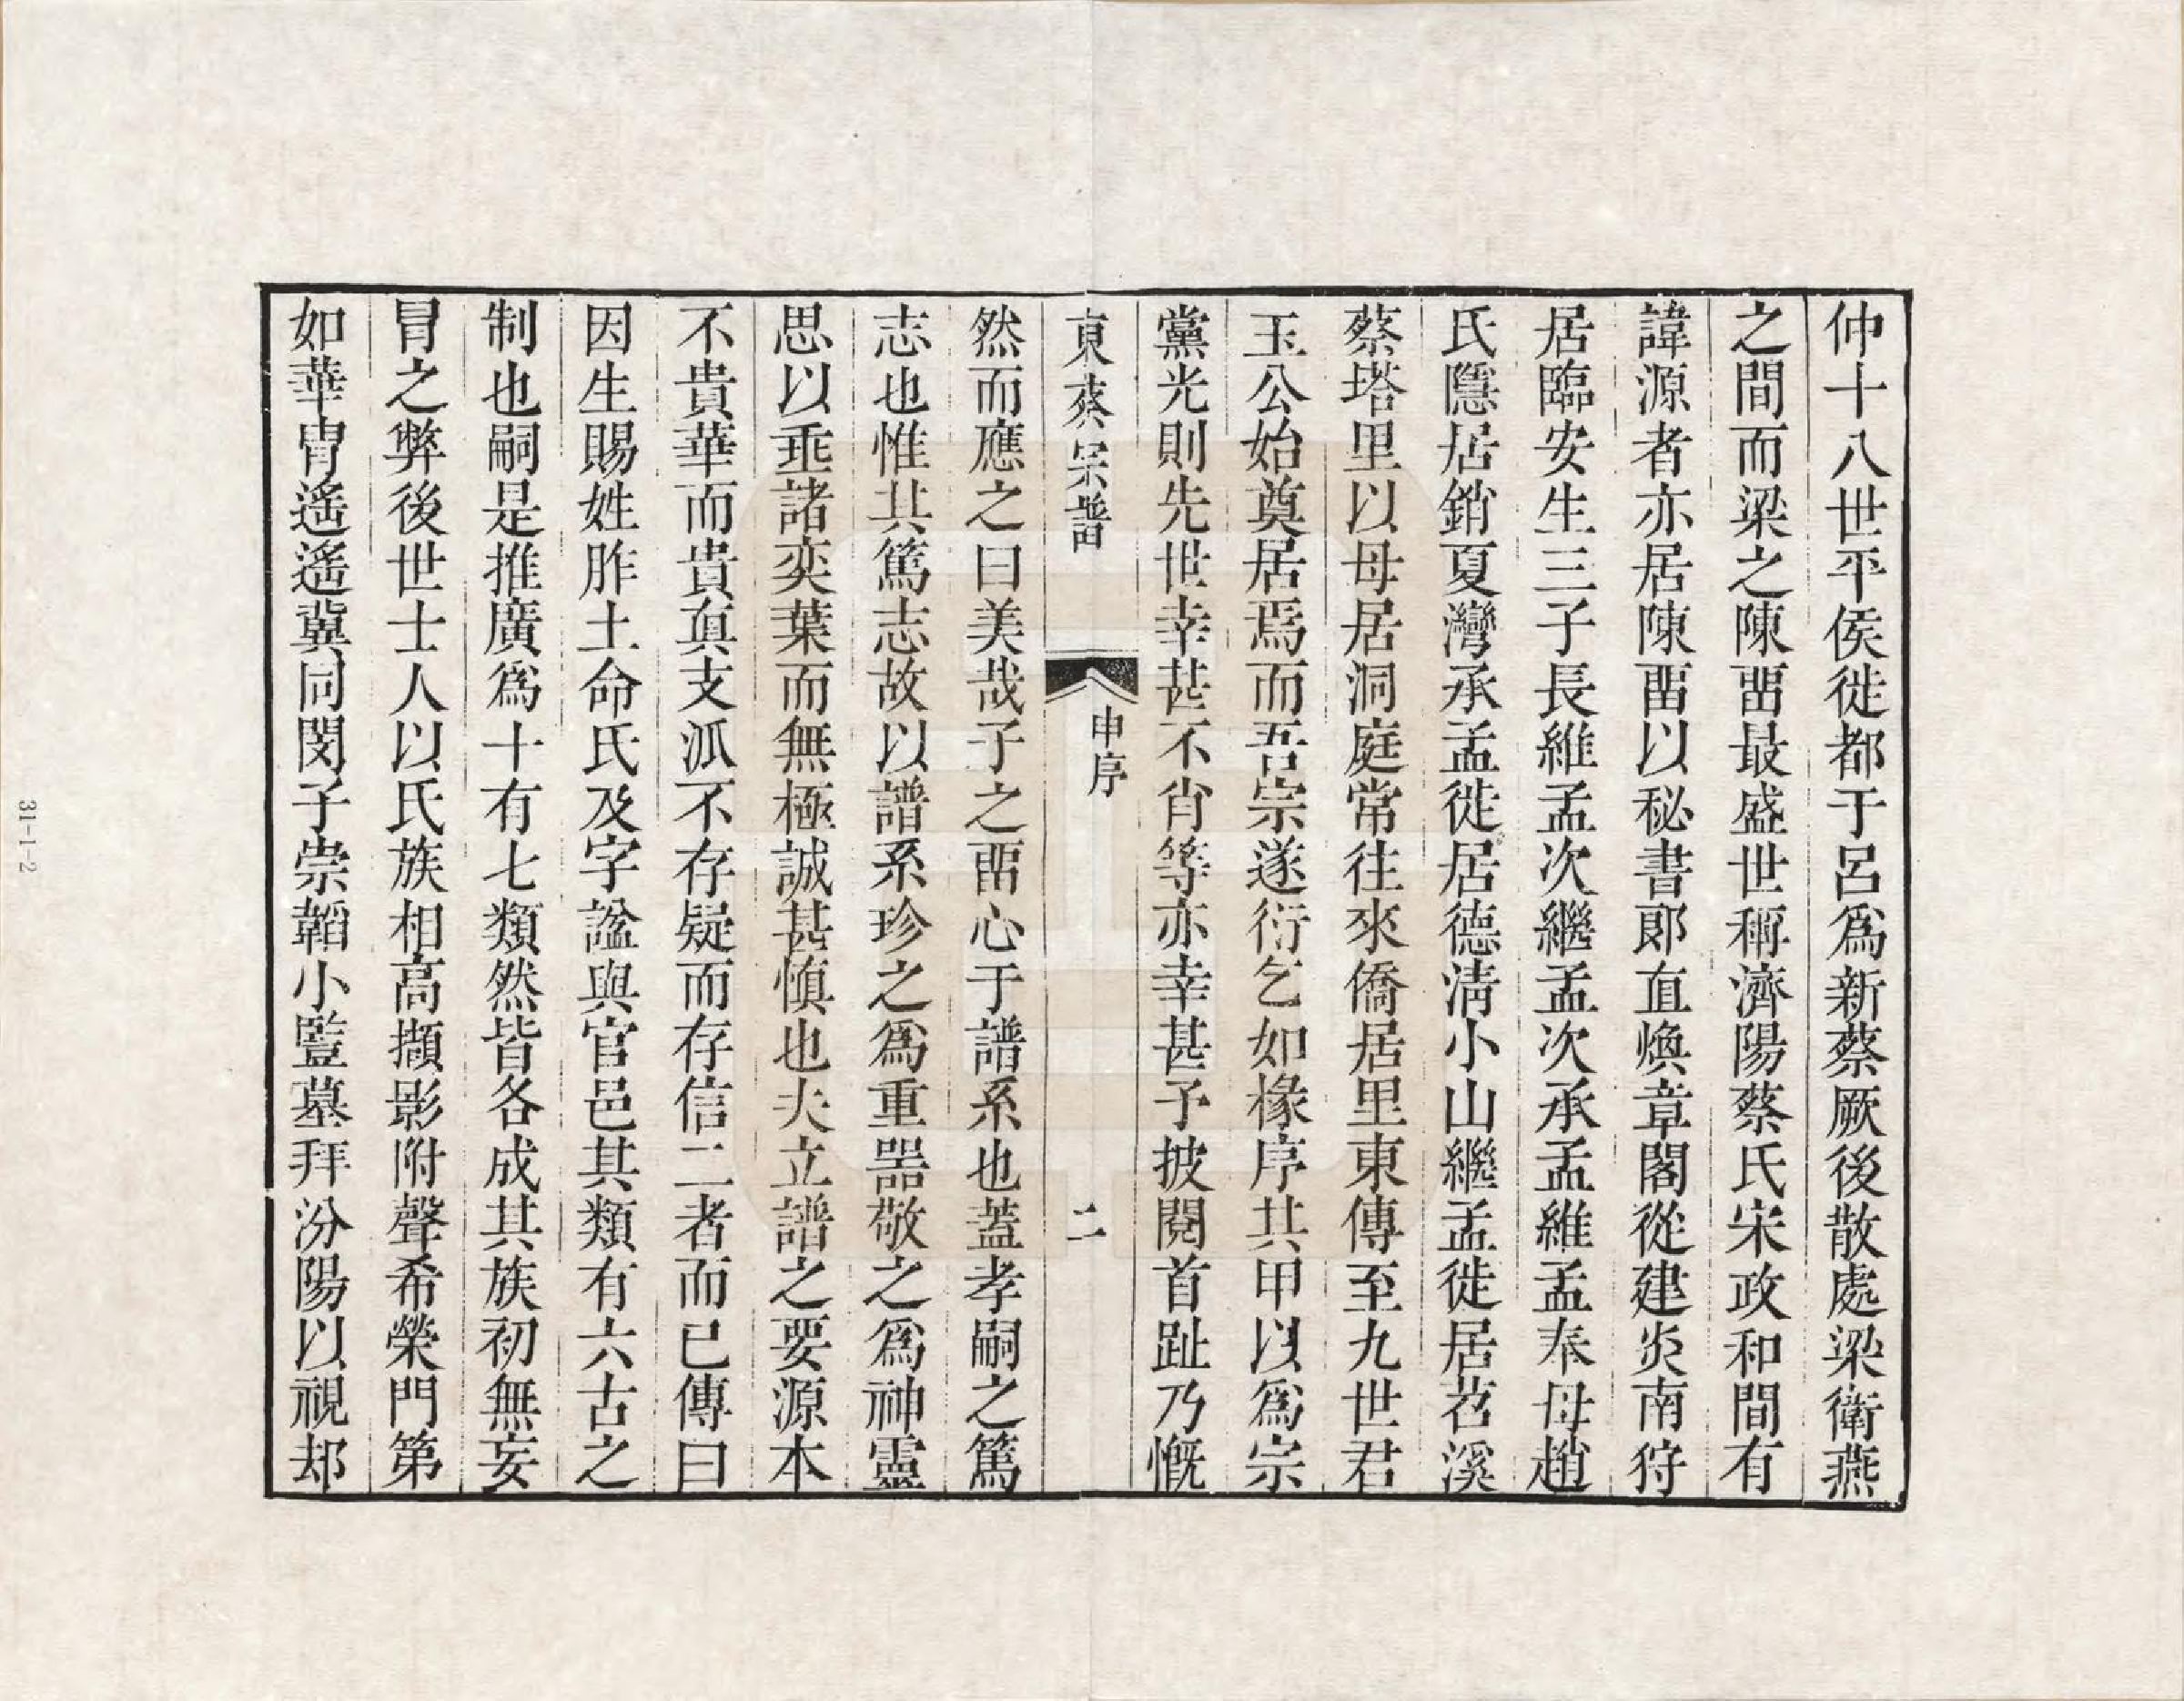 仲十八世平侯徙都于呂爲新蔡厥後散處梁衛燕
之間而梁之陳畱最盛世稱濟陽蔡氏宋政和間有
諱源者亦居陳畱以秘書郞直煥章閣從建炎南狩
居臨安生三子長維孟次繼孟次承孟維孟奉母趙
氏隱居銷夏灣承孟徙居德淸小山繼孟徙居苕溪
蔡塔里以母居洞庭常往來僑居里東傳至九世君
玉公始奠居焉而吾宗遂衍乞如椽序其甲以爲宗
黨光則先世幸甚不肖等亦幸甚予披閱首趾乃慨
東蔡宗譜
申序
二
然而應之曰美哉子之畱心于譜系也蓋孝嗣之篤
志也惟其篤志故以譜系珍之爲重器敬之爲神靈
思以垂諸奕葉而無極誠甚愼也夫立譜之要源本
不貴華而貴眞支派不存疑而存信二者而已傳曰
因生賜姓胙土命氏及字諡與官邑其類有六古之
制也嗣是推廣爲十有七類然皆各成其族初無妄
冒之弊後世士人以氏族相高擷影附聲希榮門第
如華胄遙遙冀同閔子崇韜小豎墓拜汾陽以視却
31-1-2